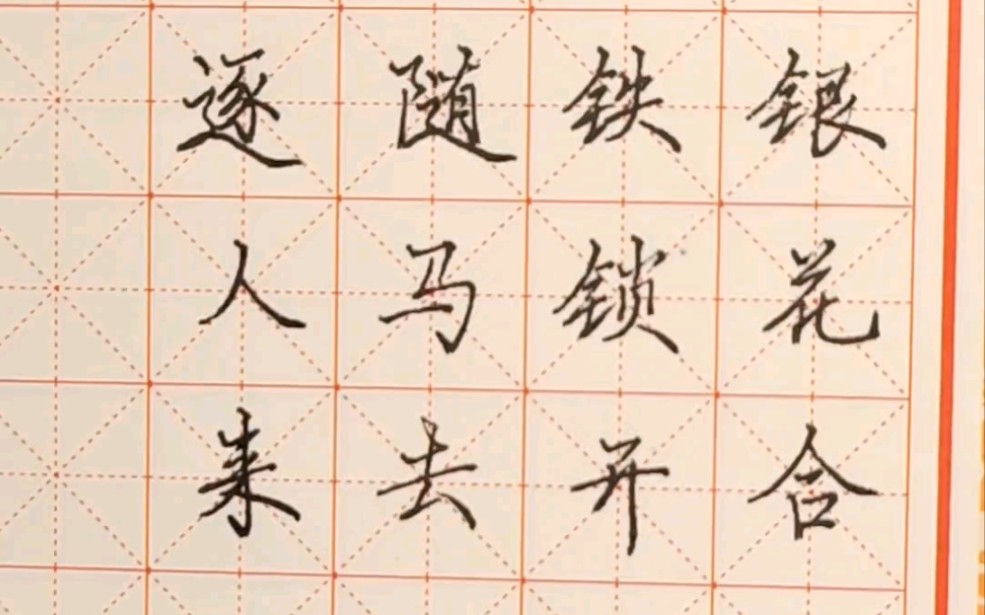 银花合
铁锁开
随马去
逐人来